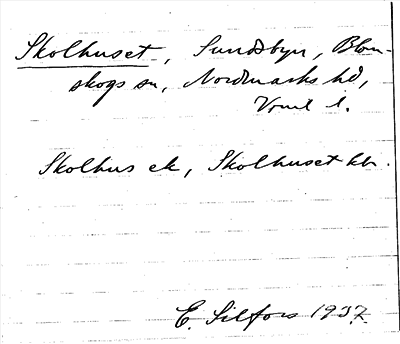 Skolhuset, Sundsbyn, Blom-
skogs sn, Nordmarks hd,
Vrml l.
Skolhus ek, Skolhuset kb.
E. Silfors 1937.